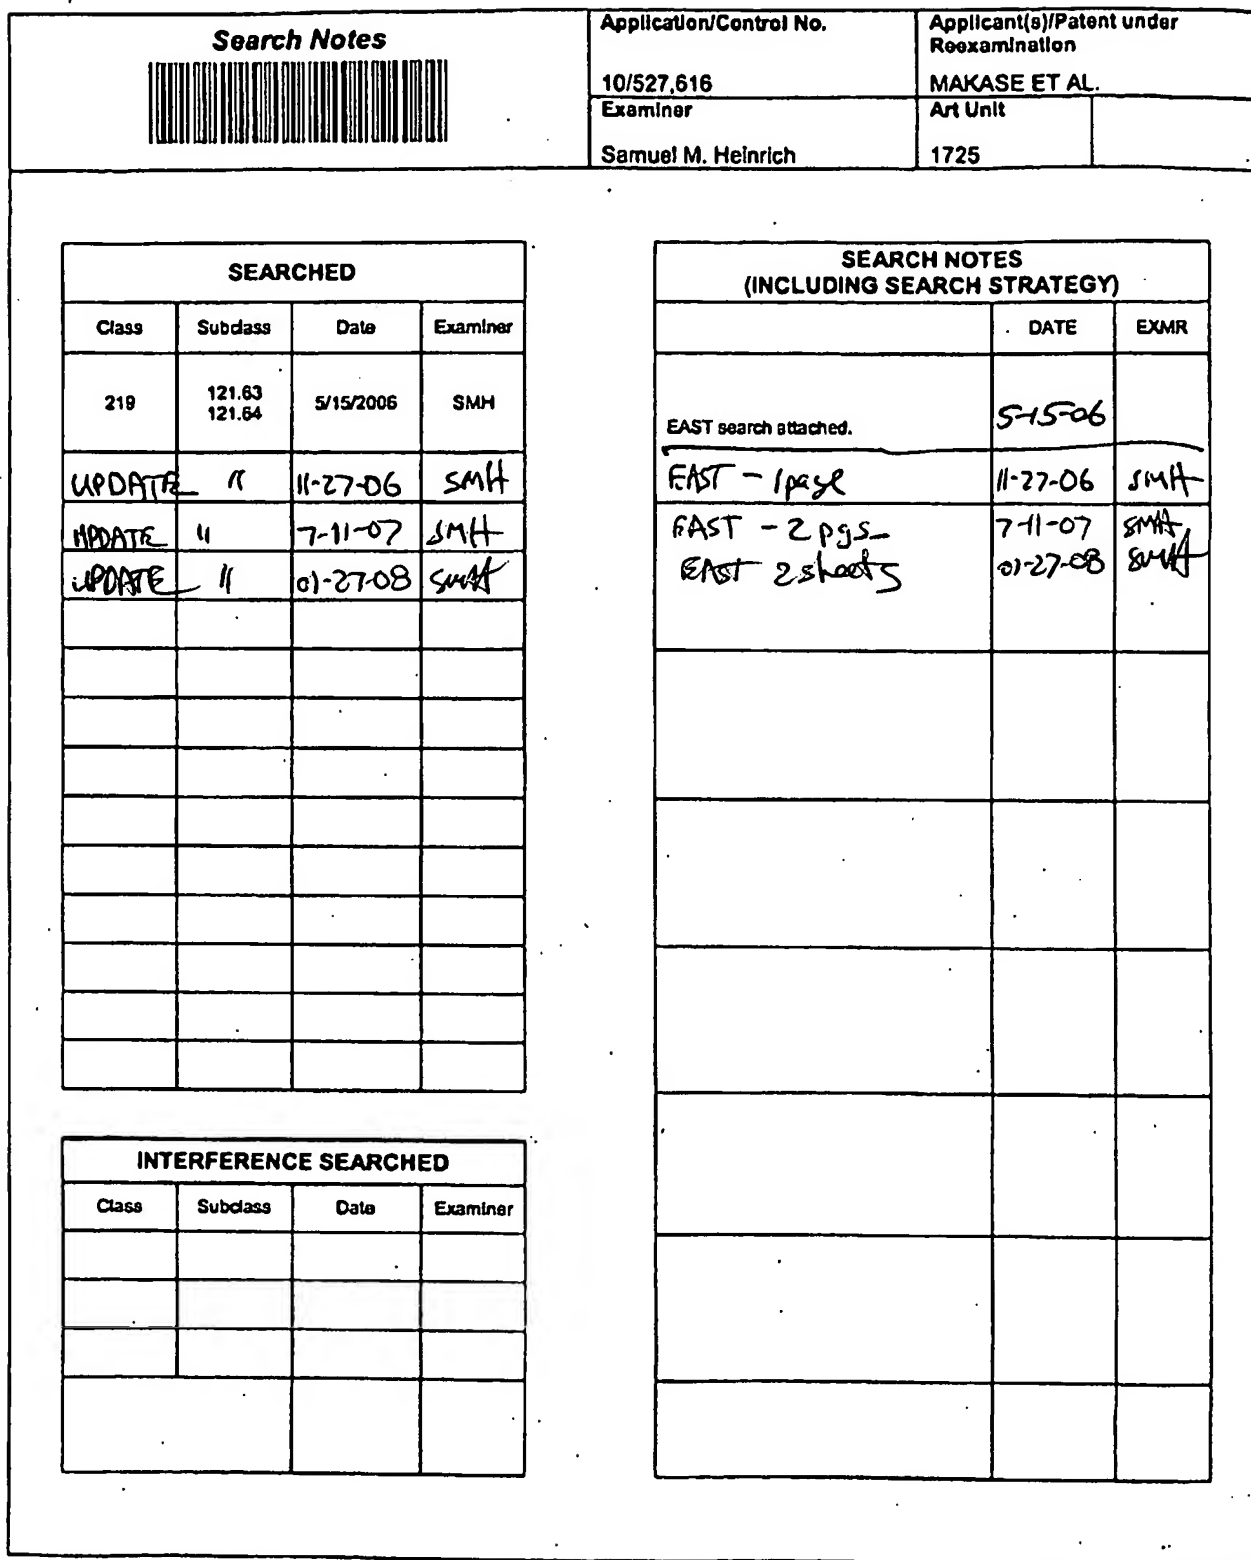 Search Notes
Application/Control No.
10/527,616
Applicant(s)/Patent under
Reexamination
MAKASE ET AL.
Examiner
Samuel M. Heinrich
Art Unit
1725
SEARCHED
Class Subclass Date Examiner
219 121.63 5/15/2006 SMH
121.64
UPDATE " 11-27-06 SMH
UPDATE " 7-11-07 SMH
UPDATE " 01-27-08 SMH
INTERFERENCE SEARCHED
Class Subclass Date Examiner
SEARCH NOTES
(INCLUDING SEARCH STRATEGY)
DATE EXMR
EAST search attached. 5-15-06
EAST - 1 page 11-27-06 SMH
EAST - 2 pgs 7-11-07 SMH
EAST 2 sheets 01-27-08 SMH